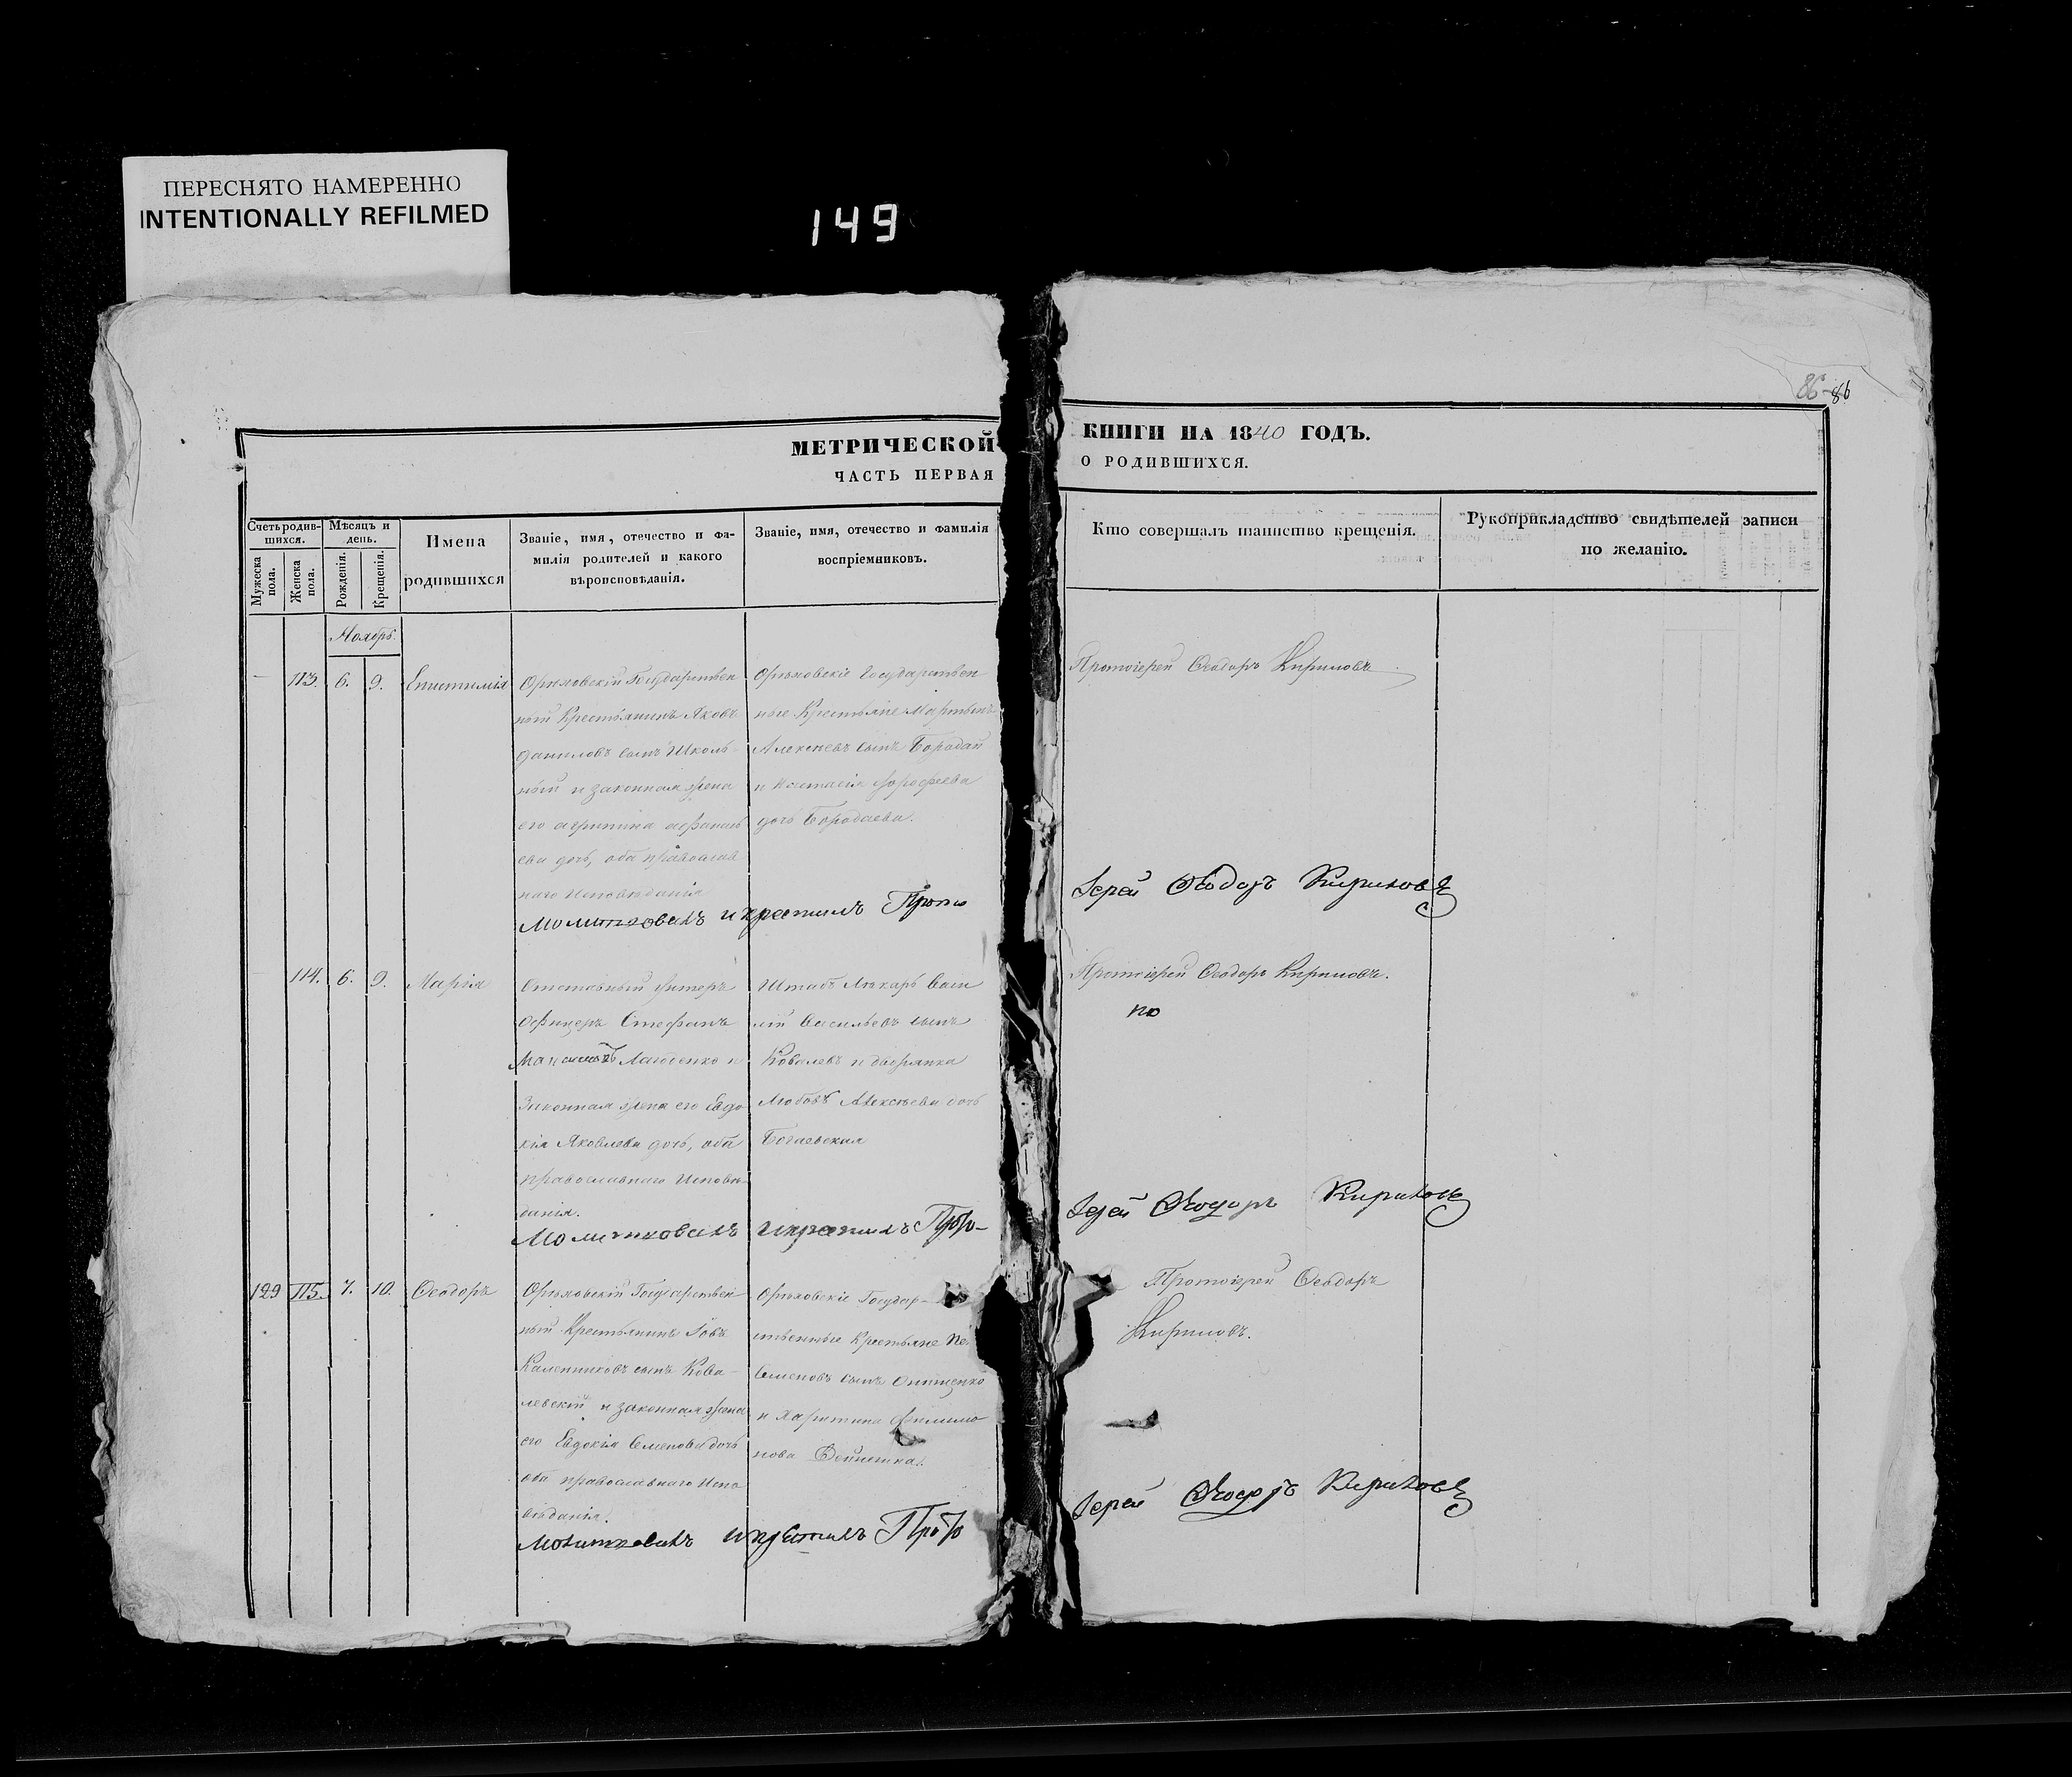 ПЕРЕСНЯТО НАМЕРЕННО
INTENTIONALLY REFILMED
149
86 86
МЕТРИЧЕСКОЙ КНИГИ НА 1840 ГОДЪ.
ЧАСТЬ ПЕРВАЯ О РОДИВШИХСЯ.
Счетъ родив-
шихся.
Мужеска пола.
Женска пола.
Мѣсяцъ и
день.
Рожденія.
Крещенія.
Имена
родившихся
Званіе, имя, отечество и фа-
милія родителей и какого
вѣроисповѣданія.
Званіе, имя, отечество и фамилія
воспріемниковъ.
Кто совершалъ таинство крещенія.
Рукоприкладство свидѣтелей записи
по желанію.
Ноябрь.
113. 6. 9. Епистимія
Орѣховскій Государствен
ный Крестьянинъ Яковъ
Даниловъ сынъ Школь-
ный и законная жена
его Агрипина
ева дочь, оба православ
наго Исповѣданія
Орѣховскіе Государствен
ные Крестьяне Мартынъ
Алексѣевъ сынъ Бородай
и Настасія Дорофеева
дочь Бородаева.
Протоіерей Ѳеодоръ Кириловъ
Молитвовалъ и крестилъ Прото
Іерей Ѳеодоръ Кириловъ
114. 6. 9. Марія
Отставный Унтеръ
Офицеръ Стефанъ
Лагоденко и
Законная жена его Евдо
кія Яковлева дочь, оба
православнаго Исповѣ
данія.
Штабъ Лѣкарь Васи
лій Васильевъ сынъ
Ковалевъ и дворянка
Любовь Алексѣева дочь
Богаевская
Протоіерей Ѳеодоръ Кириловъ.
по
Молитвовалъ и крестилъ Прото-
Іерей Ѳеодоръ Кириловъ
129 115. 7. 10. Ѳеодоръ
Орѣховскій Государствен
ный Крестьянинъ Іовъ
Калениковъ сынъ Кова-
левскій и законная жена
его Евдокія Семенова дочь
оба православнаго Испо
вѣданія.
Орѣховскіе Государ-
ственные Крестьяне
Семеновъ сынъ Онищенко
и Харитина Филимо
нова
Протоіерей Ѳеодоръ
Кириловъ.
Молитвовалъ и крестилъ Прото
Іерей Ѳеодоръ Кириловъ